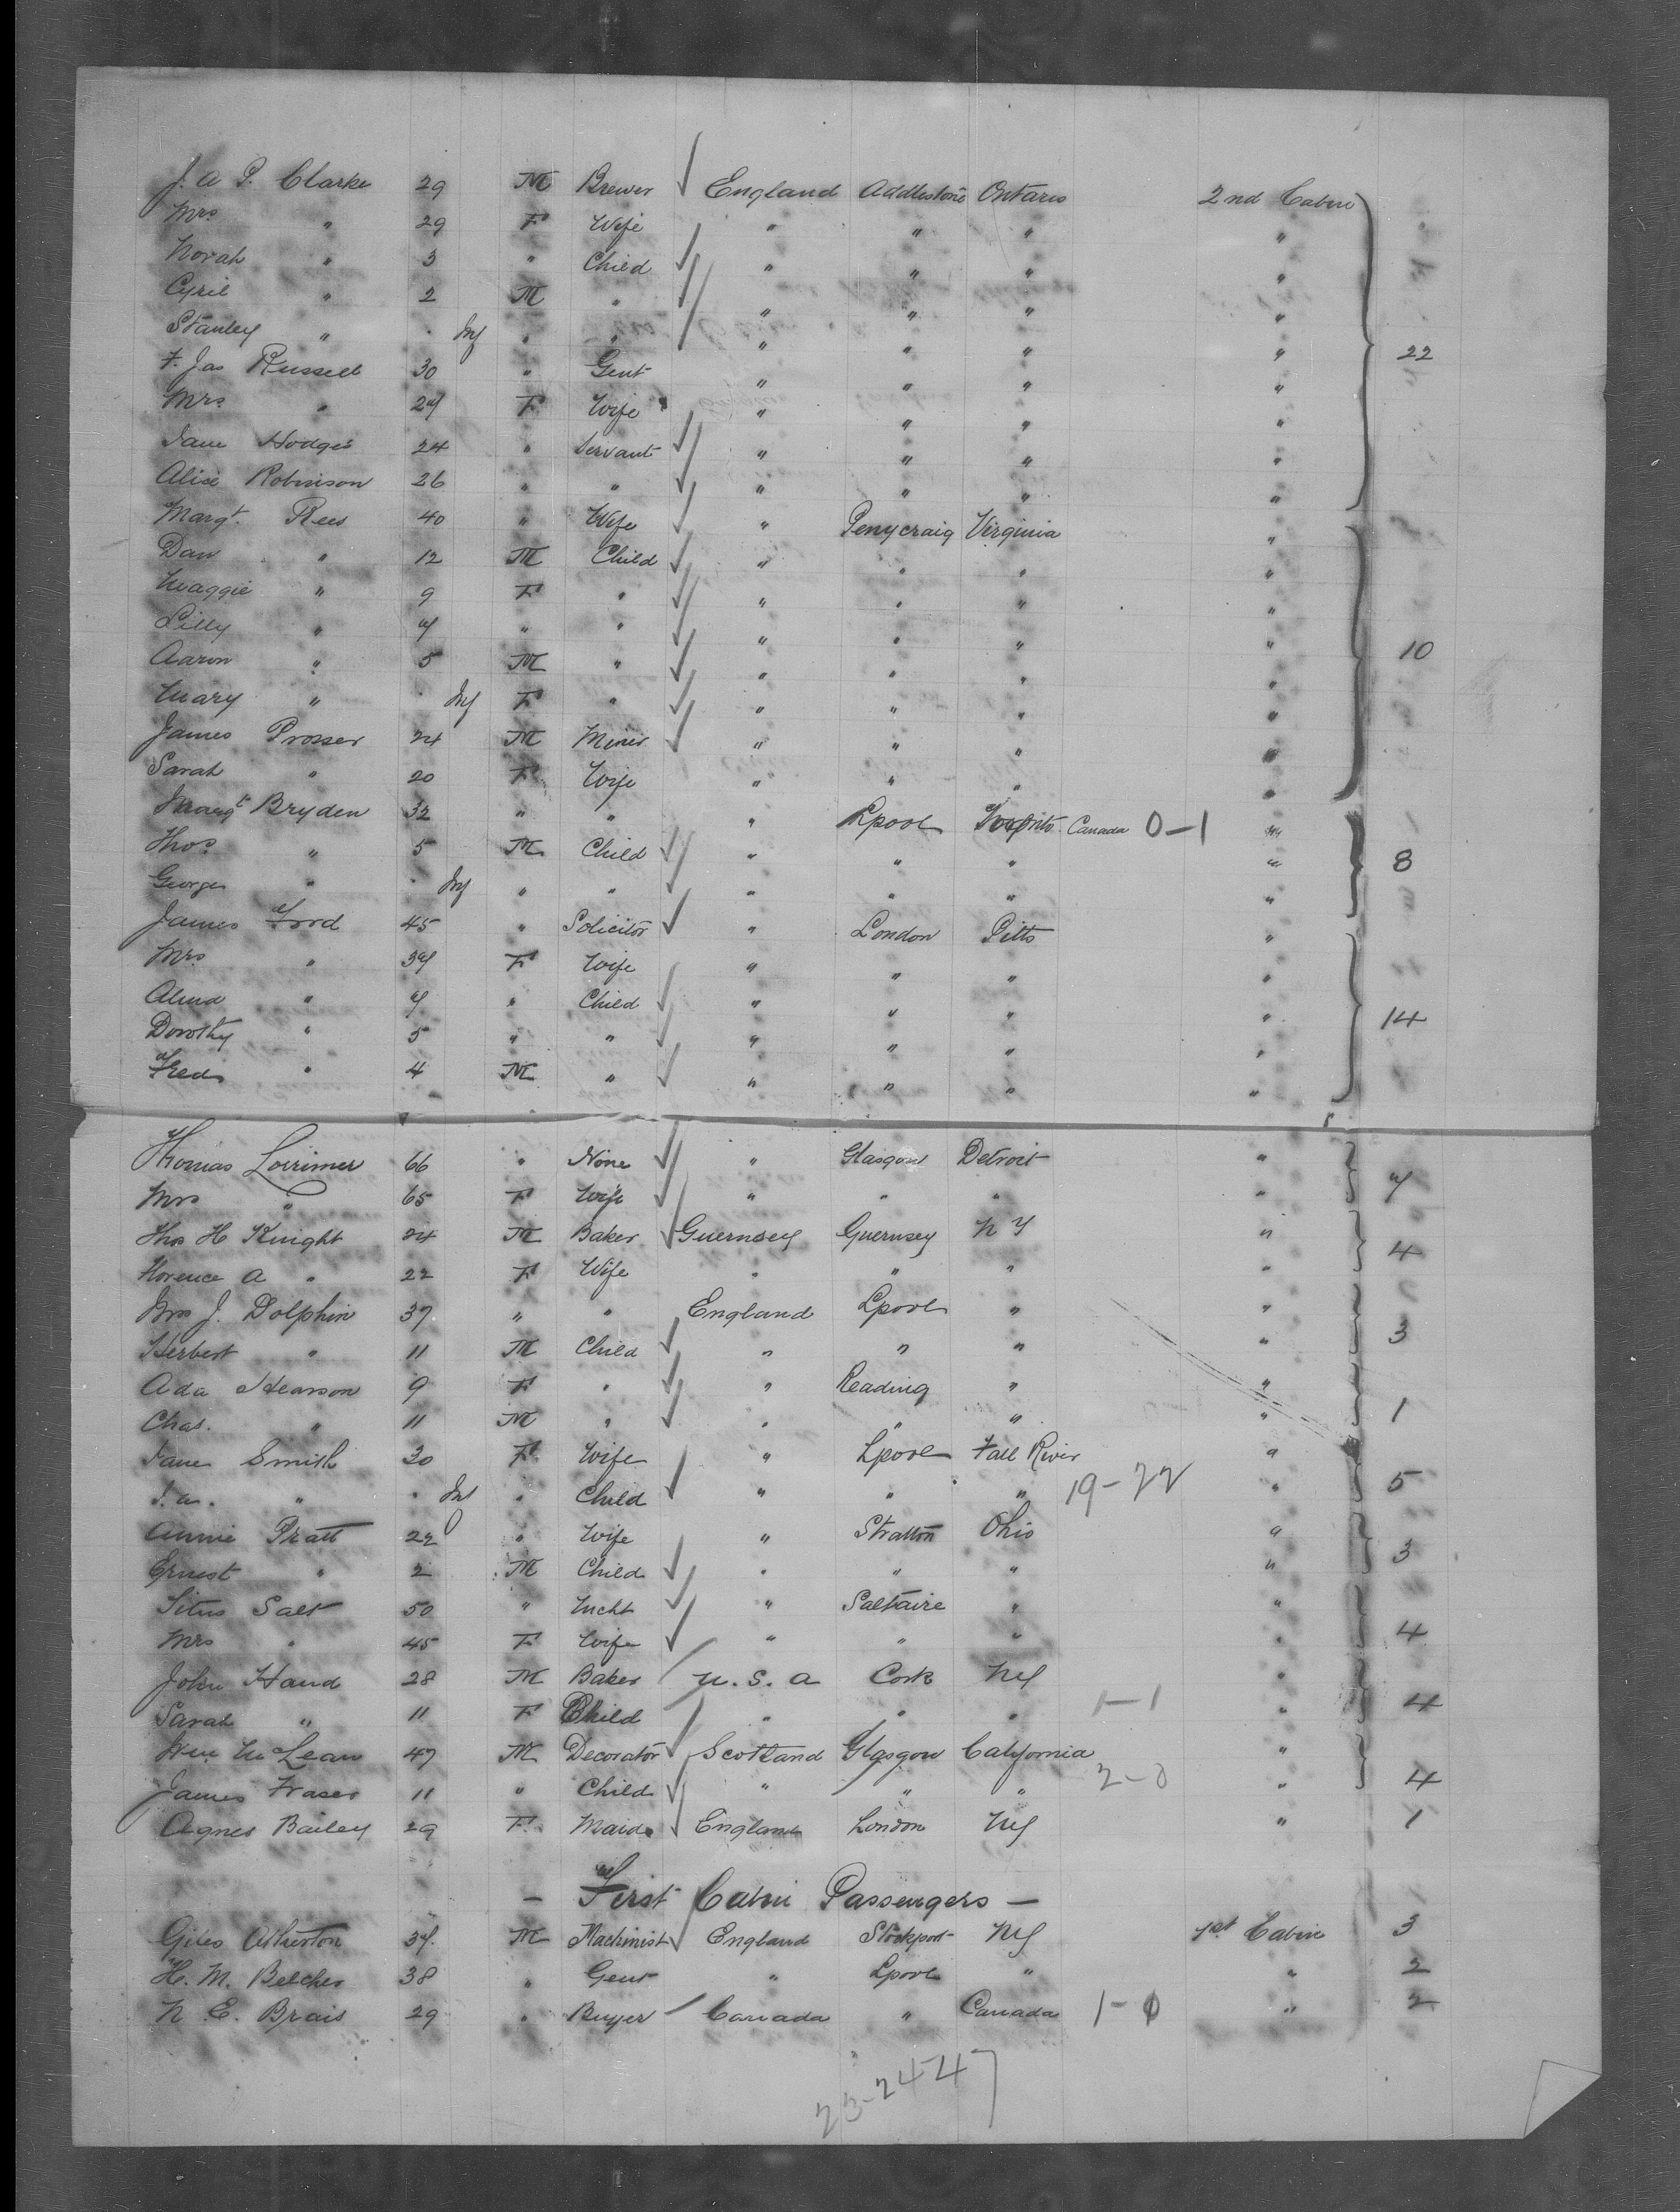 J. A. P. Clarke 29 M Brewer England Addlestone Ontario 2nd Cabin
Mrs " 29 F Wife " " " "
Norah " 3 " Child " " " "
Cyril " 2 M " " " " "
Stanley " . Inf " " " " " "
F. Jas Russell 30 " Gent " " " " 22
Mrs " 27 F Wife " " " "
Jane Hodges 24 " Servant " " " "
Alice Robinson 26 " " " " " "
Margt. Rees 40 " Wife " Penycraig Virginia "
Dan " 12 M Child " " " "
Maggie " 9 F " " " " "
Lilly " 7 " " " " " "
Aaron " 5 M " " " " " 10
Mary " . Inf F " " " " "
James Prosser 24 M Miner " " " "
Sarah " 20 F Wife " " " "
Margt Bryden 32 " " " Lpool Toronto Canada 0-1 "
Thos " 5 M Child " " " " 8
George " . Inf " " " " " "
James Ford 45 " Solicitor " London Pitts "
Mrs " 37 F Wife " " " "
" 7 " Child " " " " 14
Dorothy " 5 " " " " " "
Fred " 4 M " " " " "
Thomas Lorrimer 66 " None " Glasgow Detroit " 7
Mrs " 65 F Wife " " " "
Thos H Knight 24 M Baker Guernsey Guernsey N Y " 4
Florence A " 22 F Wife " " " "
Mrs J. Dolphin 37 " " England Lpool " " 3
Herbert " 11 M Child " " " "
Ada Hearson 9 F " " Reading " " 1
Chas. " 11 M " " " " "
Jane Smith 30 F Wife " Lpool Fall River "
" . Inf " Child " " " 19-22 " 5
Annie Pratt 22 " Wife " Stratton Ohio "
Ernest " 2 M Child " " " " 3
Titus Salt 50 " Mcht " Saltaire " "
Mrs " 45 F Wife " " " " 4
John Hand 28 M Baker U.S.A Cork NY "
Sarah " 11 F Child " " " 1-1 " 4
Wm McLean 47 M Decorator Scotland Glasgow California "
James Fraser 11 " Child " " " 2-0 " 4
Agnes Bailey 29 F Maid England London NY " 1
- First Cabin Passengers -
Giles Atherton 37 M Machinist England Stockport NY 1st Cabin 3
H. M. Belcher 38 " Gent " Lpool " " 2
N. E. Brais 29 " Buyer Canada " Canada 1-0 " 2
23-24 47